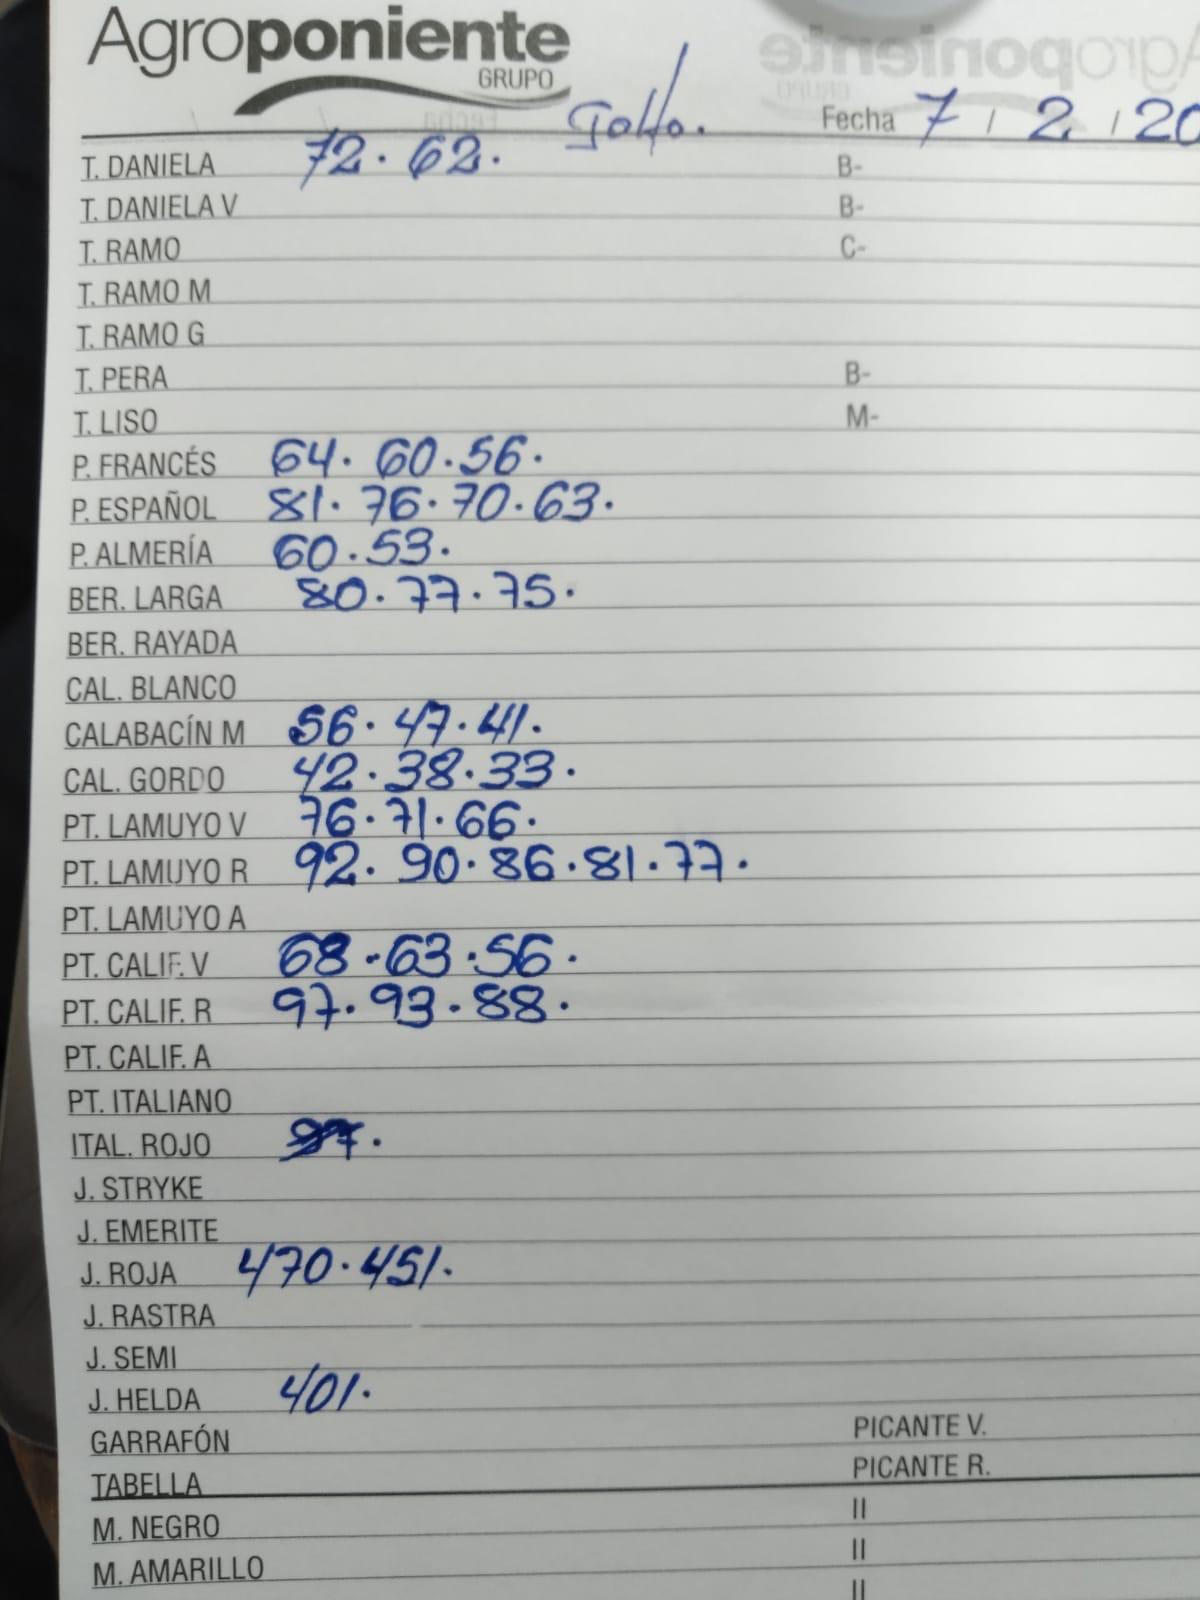 Agroponiente
GRUPO
Fecha 7 / 2 / 20
T. DANIELA 72. 62. B-
T. DANIELA V B-
T. RAMO C-
T. RAMO M
T. RAMO G
T. PERA B-
T. LISO M-
P. FRANCÉS 64. 60. 56.
P. ESPAÑOL 81. 76. 70. 63.
P. ALMERÍA 60. 53.
BER. LARGA 80. 77. 75.
BER. RAYADA
CAL. BLANCO
CALABACÍN M 56. 47. 41.
CAL. GORDO 42. 38. 33.
PT. LAMUYO V 76. 71. 66.
PT. LAMUYO R 92. 90. 86. 81. 77.
PT. LAMUYO A
PT. CALIF. V 68. 63. 56.
PT. CALIF. R 97. 93. 88.
PT. CALIF. A
PT. ITALIANO
ITAL. ROJO
J. STRYKE
J. EMERITE
J. ROJA 470. 451.
J. RASTRA
J. SEMI
J. HELDA 401.
GARRAFÓN PICANTE V.
TABELLA PICANTE R.
M. NEGRO II
M. AMARILLO II
II